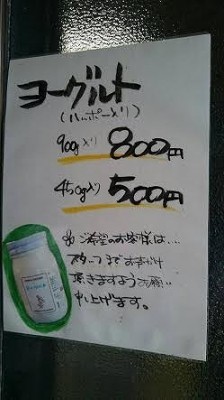 ヨーグルト
(ハッポー入り)
900g入り 800円
450g入り 500円
ご希望のお客様は…
スタッフまでお声がけ
頂きますようお願い
申し上げます。